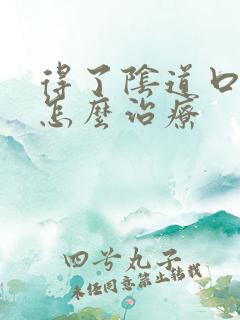 得了陰道口
怎麼治療
四号丸子
未经同意禁止转载